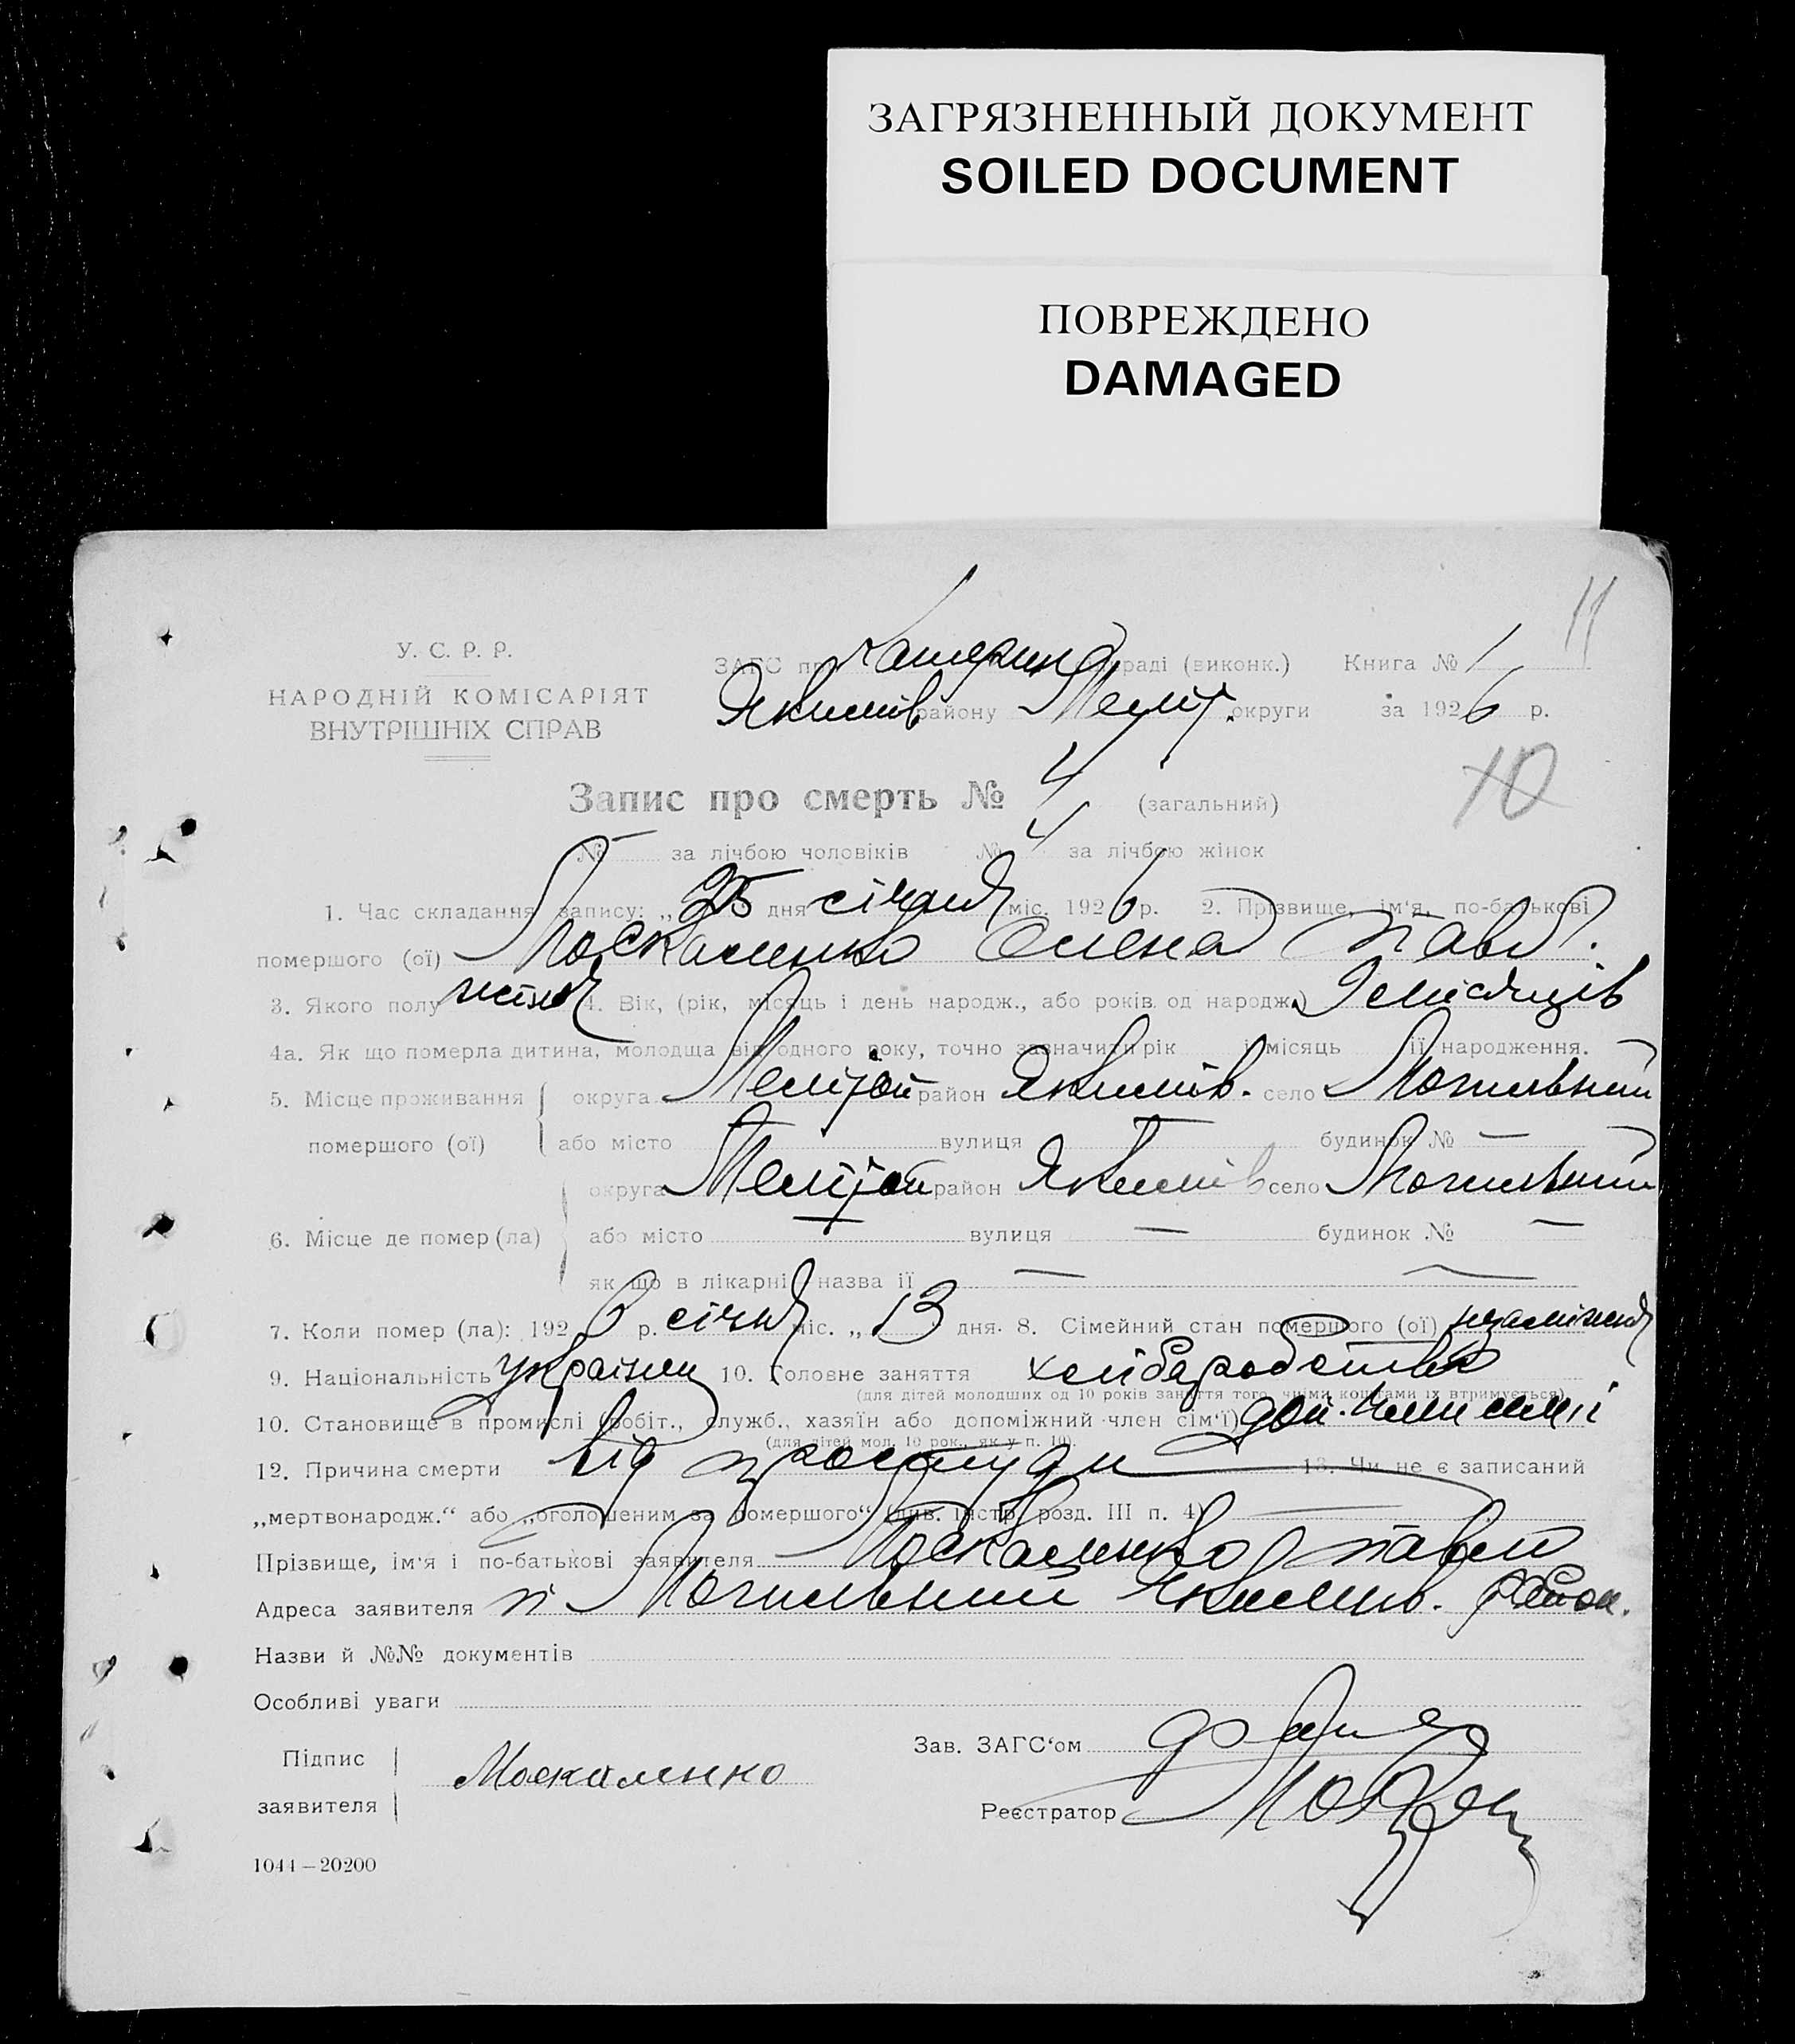 ЗАГРЯЗНЕННЫЙ ДОКУМЕНТ
SOILED DOCUMENT
ПОВРЕЖДЕНО
DAMAGED
11
У. С. Р. Р.
НАРОДНІЙ КОМІСАРІЯТ
ВНУТРІШНІХ СПРАВ
ЗАГС при Катерин раді (виконк.) Книга № 1
Якимів району Меліт. округи за 1926 р.
10
Запис про смерть № 4 (загальний)
№ — за лічбою чоловіків № 4 за лічбою жінок
1. Час складання запису: „25 дня січня міс. 1926 р. 2. Прізвище, ім'я, по-батькові
помершого (ої) Москаленко Олена Павл.
3. Якого полу жіноч 4. Вік, (рік, місяць і день народж., або років од народж.) 9 місяців
4а. Як що померла дитина, молодща від одного року, точно зазначити рік і місяць її народження.
5. Місце проживання округа Меліпол район Якимів. село Могильний
помершого (ої) або місто — вулиця — будинок № —
округа Меліпол район Якимів село Могильний
6. Місце де помер (ла) або місто — вулиця — будинок № —
як що в лікарні назва ії —
7. Коли помер (ла): 1926 р. січня міс. „13 дня. 8. Сімейний стан помершого (ої) незаміжня
9. Національність 10. Головне заняття хліборобство
(для дітей молодших од 10 років заняття того, чиїми коштами їх втримується)
10. Становище в промислі (робіт., служб., хазяїн або допоміжний член сім'ї) доп. член сімії
(для дітей мол. 10 рок., як у п. 10).
12. Причина смерти від простуди 13. Чи не є записаний
„мертвонародж.“ або „оголошеним за помершого“ (див. інстр. розд. III п. 4)
Прізвище, ім'я і по-батькові заявителя Москаленко Павло
Адреса заявителя п Могильний Якимів. район.
Назви й №№ документів
Особливі уваги
Підпис
заявителя
Москаленко
Зав. ЗАГС'ом
Реєстратор
1044—20200